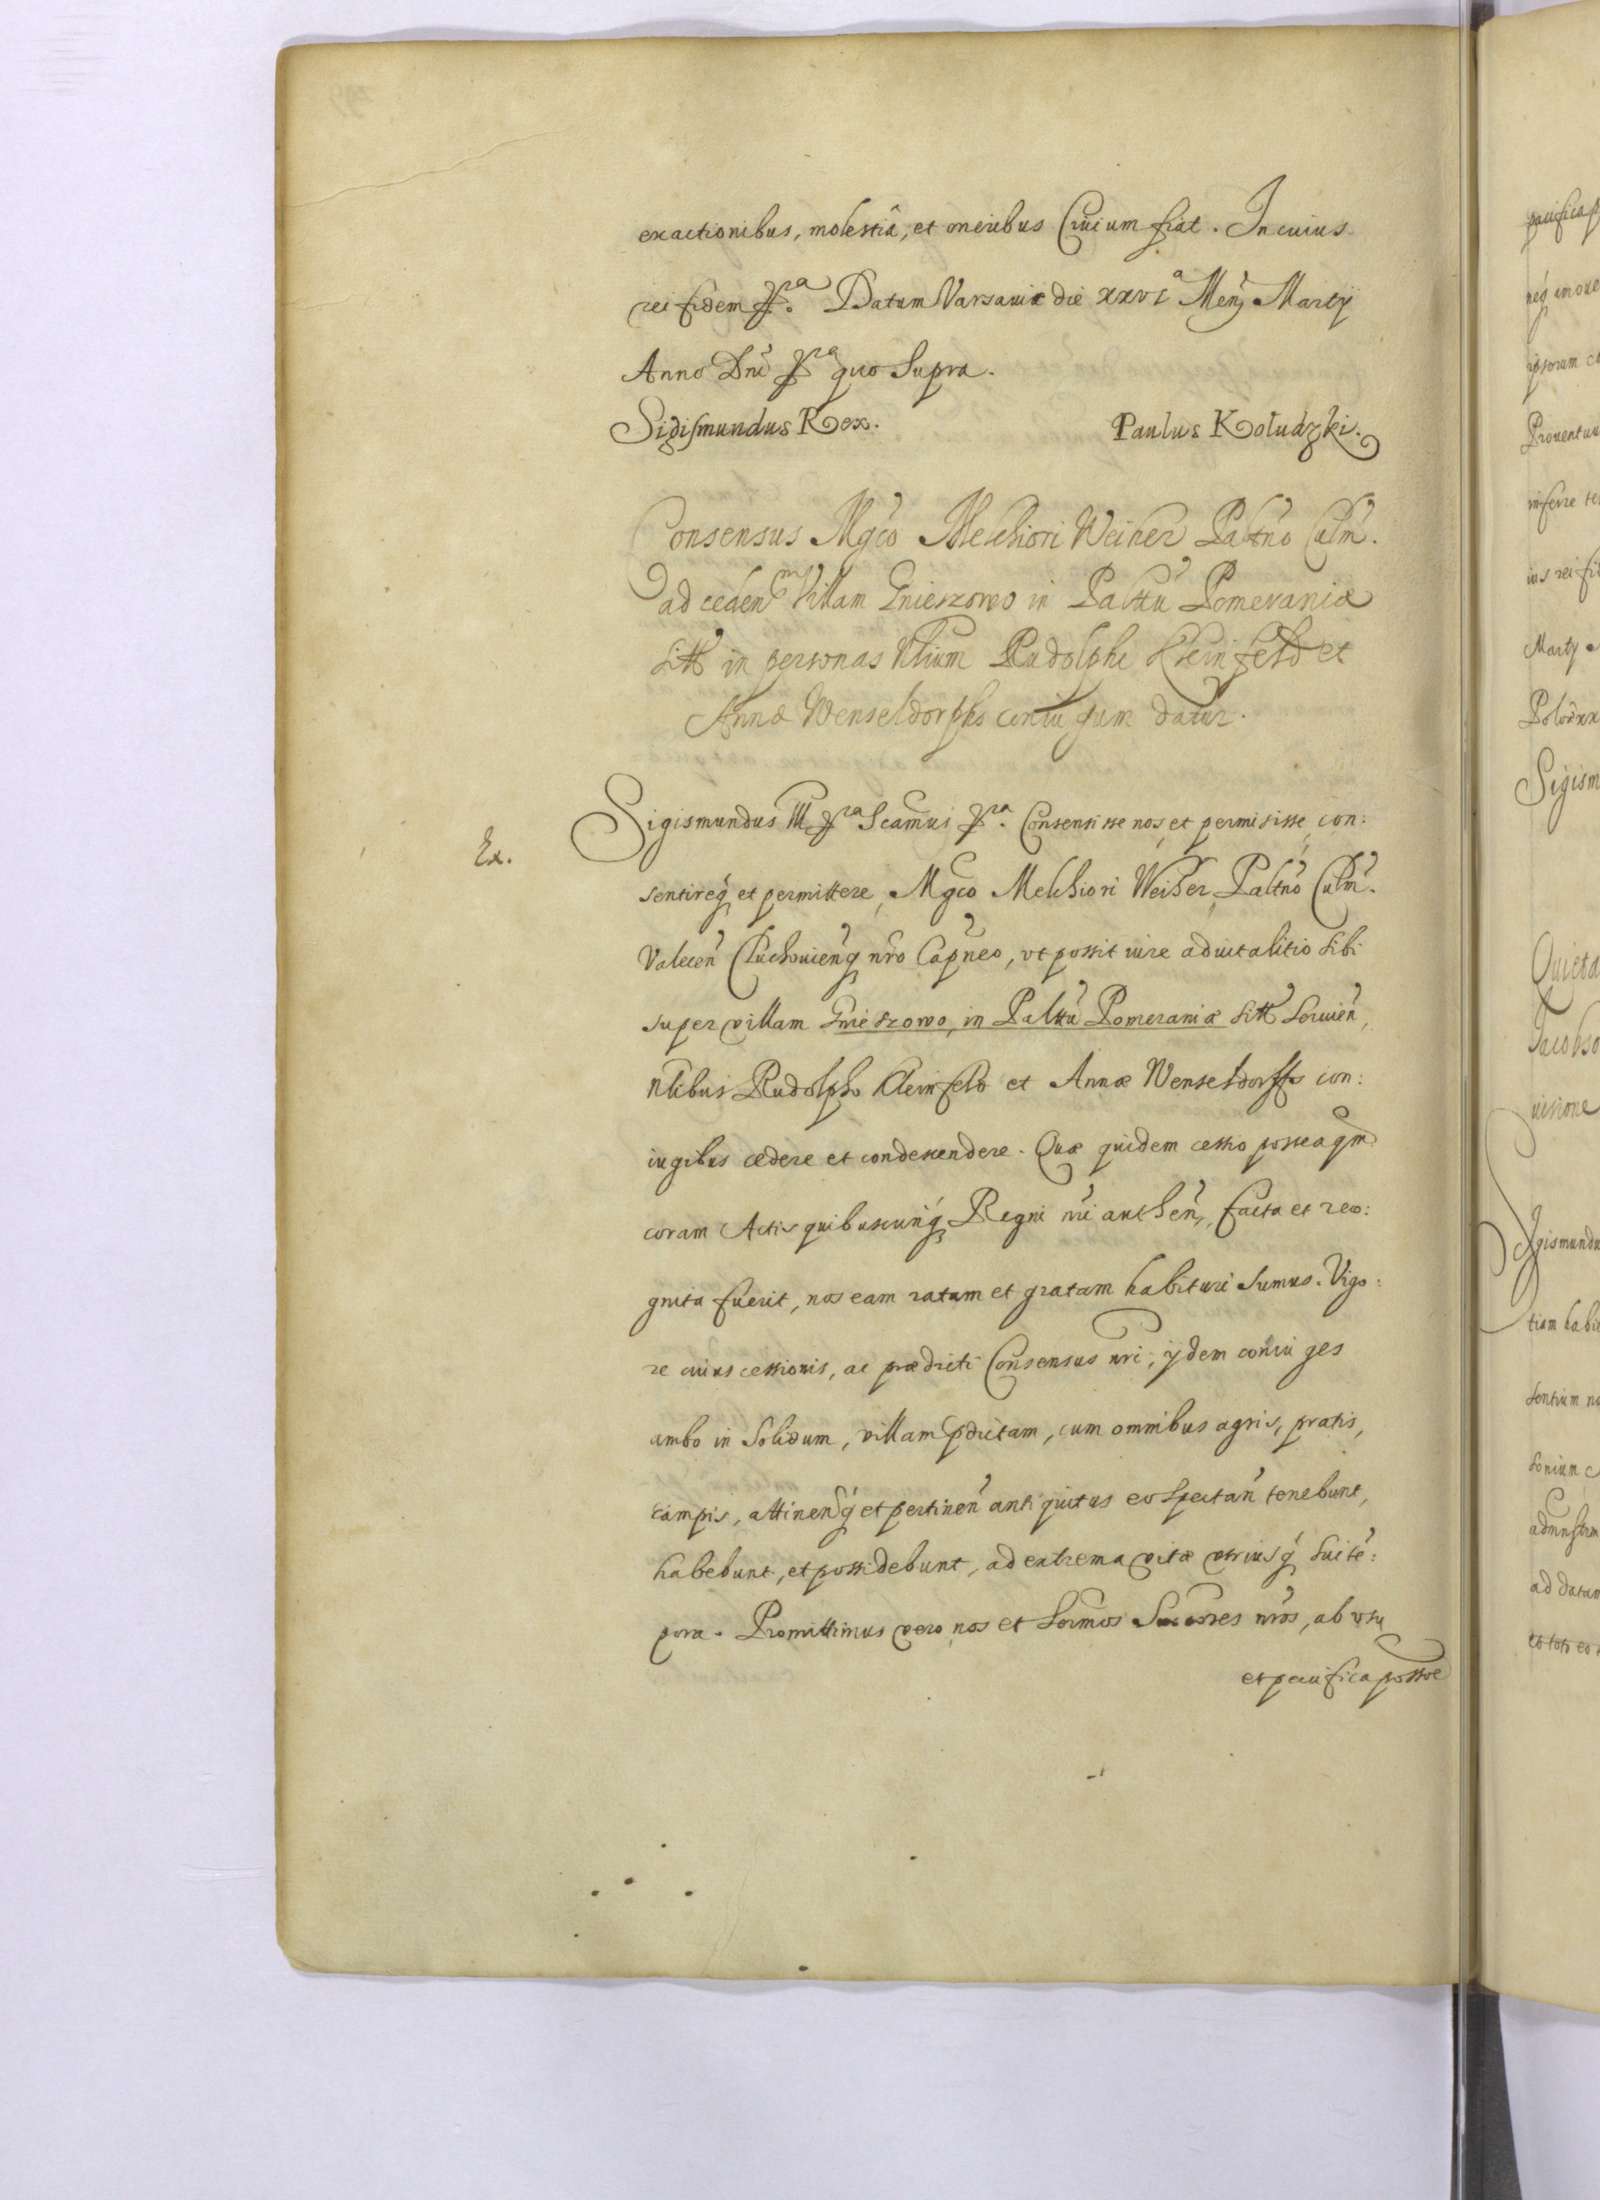 exactionibus, molestiâ, et oneribus Ciuium fiat. In cuius
rei fidem Datum Varsauiæ die xxvi^a Menß Martij
Anno Dni quo Supra.
Sigismundus Rex. Paulus Koludzki.
Consensus Mgco Melchiori Weiher Paltno Culm.
ad ceden^m Villam Gnieszowo in Palttu Pomeraniæ
sitt in personas Nlium Rudolphi Kleinfeld et
Annæ Wenseldorphs coniugum datur.
Sigismundus III Scamus Consensisse nos et permisisse, con:
Ex.
sentireq et permittere, Mgco Melchiori Weiher, Paltno Culm.
Valecen Cluchouienq nro Capneo, vt possit iure aduitalitio sibi
super villam Gnieszowo, in Palttu Pomeraniæ sitt seruien,
Nlibus Rudolpho Kleinfeld et Annæ Wenseldorffs con:
iugibus cedere et condescendere. Quæ quidem cessio posteaqm
coram Actis quibuscunq Regni nri authen, facta et reco:
gnita fuerit, nos eam ratam et gratam habituri sumus. Vigo:
re cuius cessionis, ac prædicti Consensus nri, ijdem coniuges
ambo in solidum, villam pdictam, cum omnibus agris, pratis,
campis, attinenq et pertinen antiquitus eo spectan tenebunt,
habebunt, et possidebunt, ad extrema vitæ vtriusq sui tê:
pora. Promittimus vero nos et Sermos Succores nros, ab vsu
et pacifica possoe
pacifica p
neq
ipsorum co
Prouentuu
inferre
ius rei fi
Martij
Sigism
Quieta
Jacobso
uisione
Sigismundu
tiam habi
sentium no
ad datam